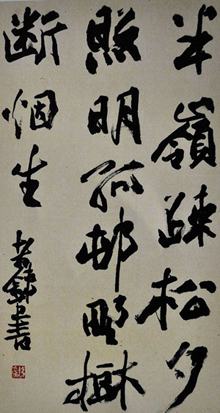 半嶺踈松夕
照明孤邨野樹
断烟生
書